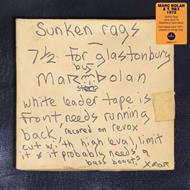 MARC BOLAN
& T. REX
1972
Sunken rags
7½ for glastonbury
bus
Marc bolan
white leader tape is
front needs running
back, record on revox
cut with high level, limit
it & it probably needs a
bass boost